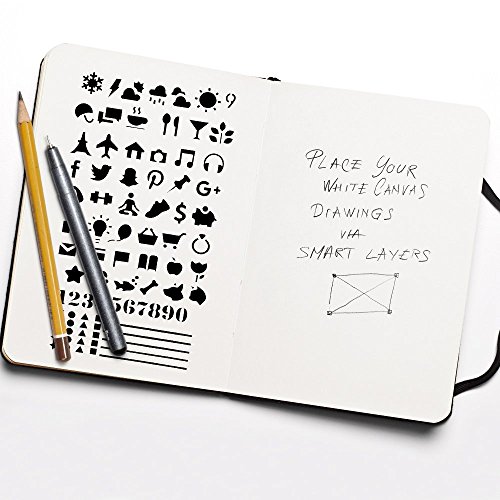 9
f G+
$
123 567890
PLACE YOUR
WHITE CANVAS
DRAWINGS
VIA
SMART LAYERS